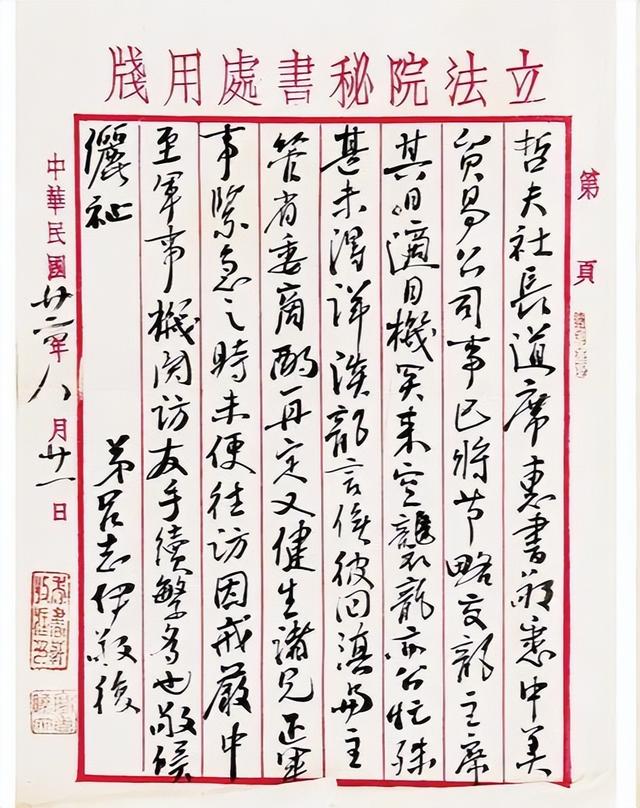 立法院秘書處用牋
第 頁
哲夫社長道席惠書敬悉中美
貿易公司事已將节略交龍主席
其日適日機来空襲龍亦公忙殊
甚未得详谈龍言俟彼回滇與主
管省委商酌再定又健生諸兄正軍
事緊急之時未便往訪因戒嚴中
至軍事機関訪友手續繁多也敬候
儷祉
弟吕志伊敬復
中華民國廿六年八月廿一日